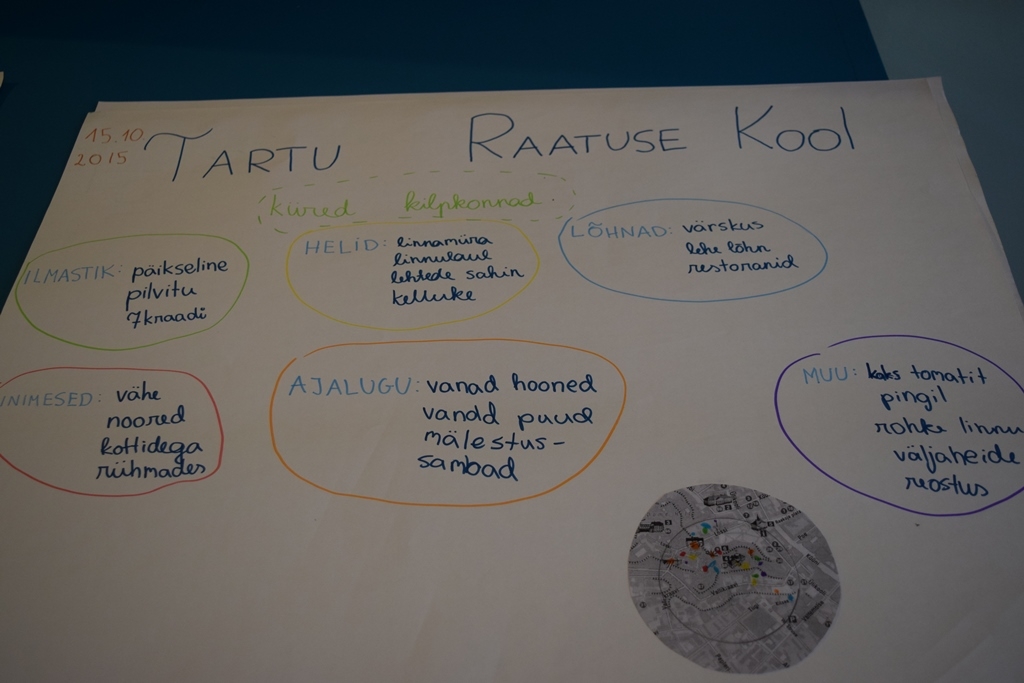 15.10
2015
TARTU RAATUSE KOOL
kured kilpkonnad
ILMASTIK: päikseline
pilvitu
7kraadi
HELID: linnamüra
linnulaul
lehtede sahin
kelluke
LÕHNAD: värskus
lehe lõhn
restoranid
INIMESED: vähe
noored
kottidega
rühmades
AJALUGU: vanad hooned
vanad puud
mälestus-
sambad
MUU: kaks tomatit
pingil
rohke linnu
väljaheide
reostus